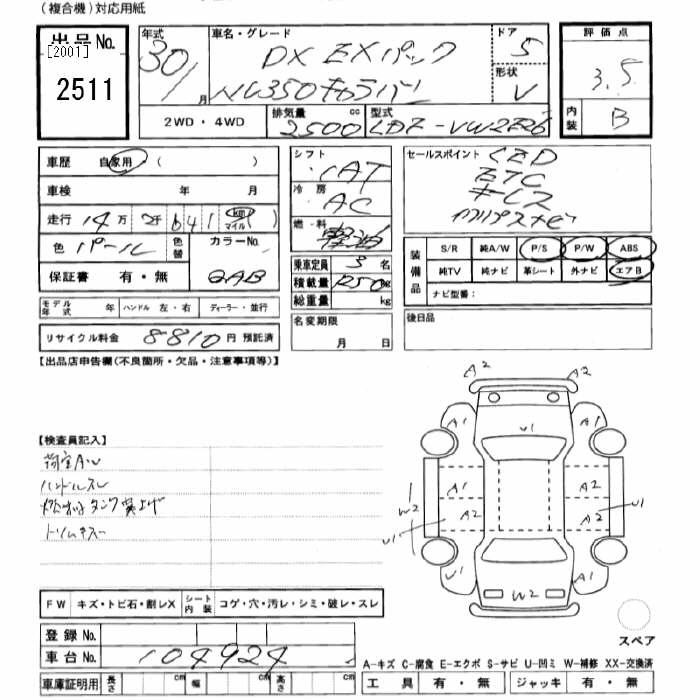 (複合機)対応用紙
出品No.
[2001]
2511
年式 30/ 月
車名・グレード DX EXパック
NV350キャラバン
ドア 5
形状 V
2WD・4WD
排気量 2500 cc
型式 LDF-VW2E26
評価点 3.5
内装 B
車歴 自家用 ( )
車検 年 月
走行 14万2千641 (km マイル)
色 パール 色替
カラーNo. QAB
保証書 有・無
シフト AT
冷房 AC
燃料 軽油
乗車定員 3 名
積載量 1250 kg
総重量 kg
名変期限 月 日
セールスポイント LED
ETC
キーレス
装備品 S/R 純A/W P/S P/W ABS
純TV 純ナビ 革シート 外ナビ エアB
ナビ型番:
後日品
モデル年式 年 ハンドル 左・右 ディーラー・並行
リサイクル料金 8810円 預託済
【出品店申告欄(不良箇所・欠品・注意事項等)】
【検査員記入】
荷室AW
ハンドルスレ
トリムキズ
A2 A2
A1 U1 A1
A1 A2
W2 A2 A2 U1
U1
U1 W2 A1
スペア
FW キズ・トビ石・割レX シート内装 コゲ・穴・汚レ・シミ・破レ・スレ
登録No.
車台No. 104924
車庫証明用 長さ cm 幅 cm 高さ cm
A-キズ C-腐食 E-エクボ S-サビ U-凹ミ W-補修 XX-交換済
工具 有・無 ジャッキ 有・無